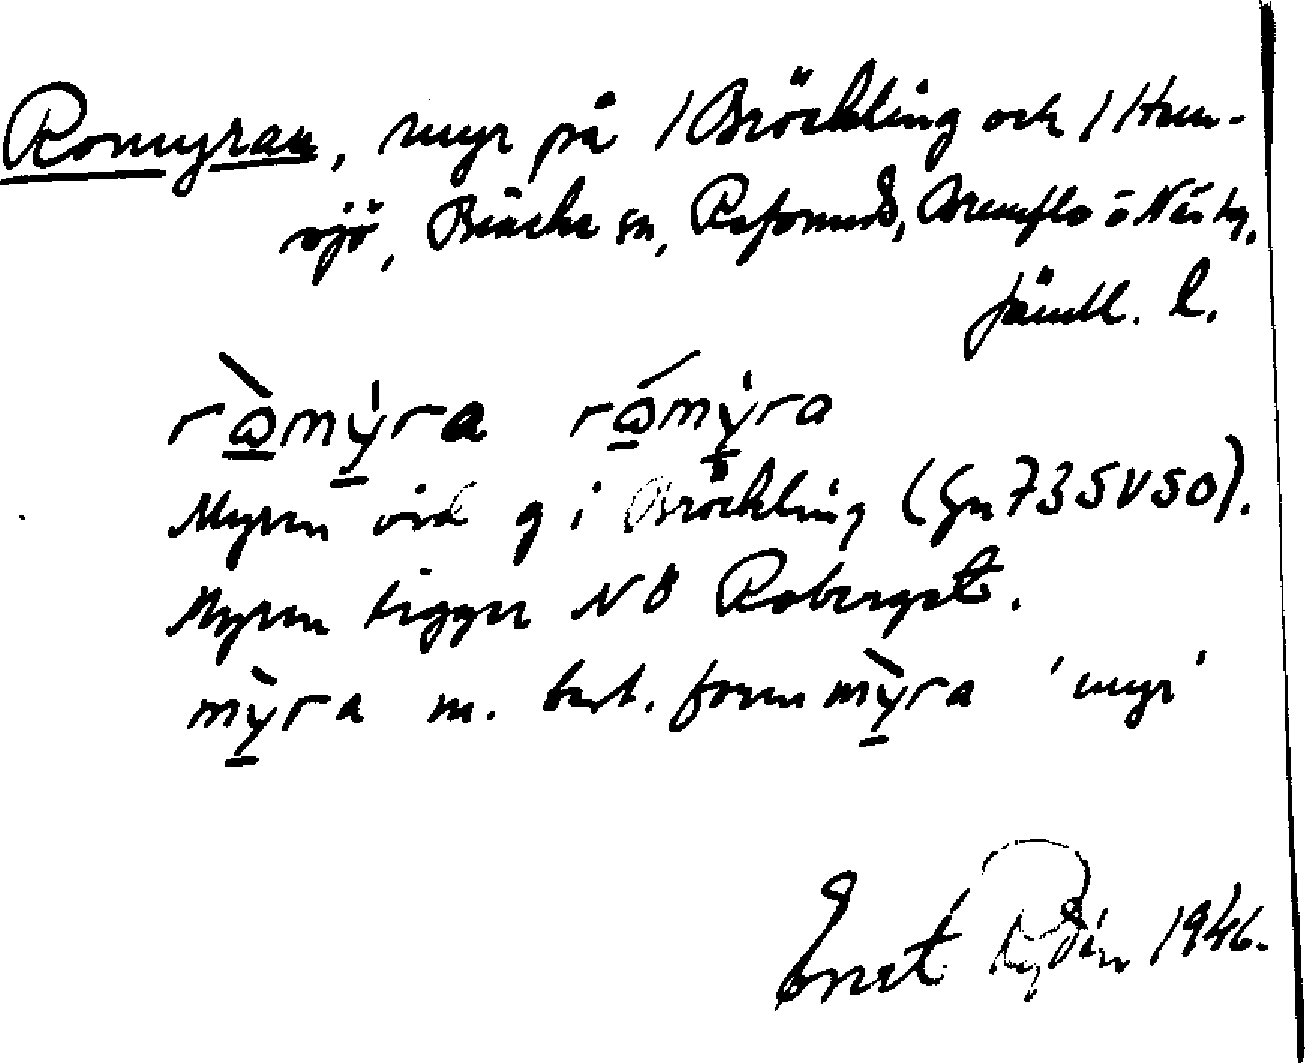 Romyran, myr på 1 Bröckling och 1 Hun-
sjö, Bräcke sn, Refsunds, Brunflo o Näs tg,
Jämtl. l.
rò̱mý̱ra ró̱mý̱ra
Myren vid g i Bröckling (Gn 735V50).
Myren ligger NÖ Roberget.
mỳ̱ra m. best. form mỳ̱ra 'myr'
Ernst Rydén 1946.